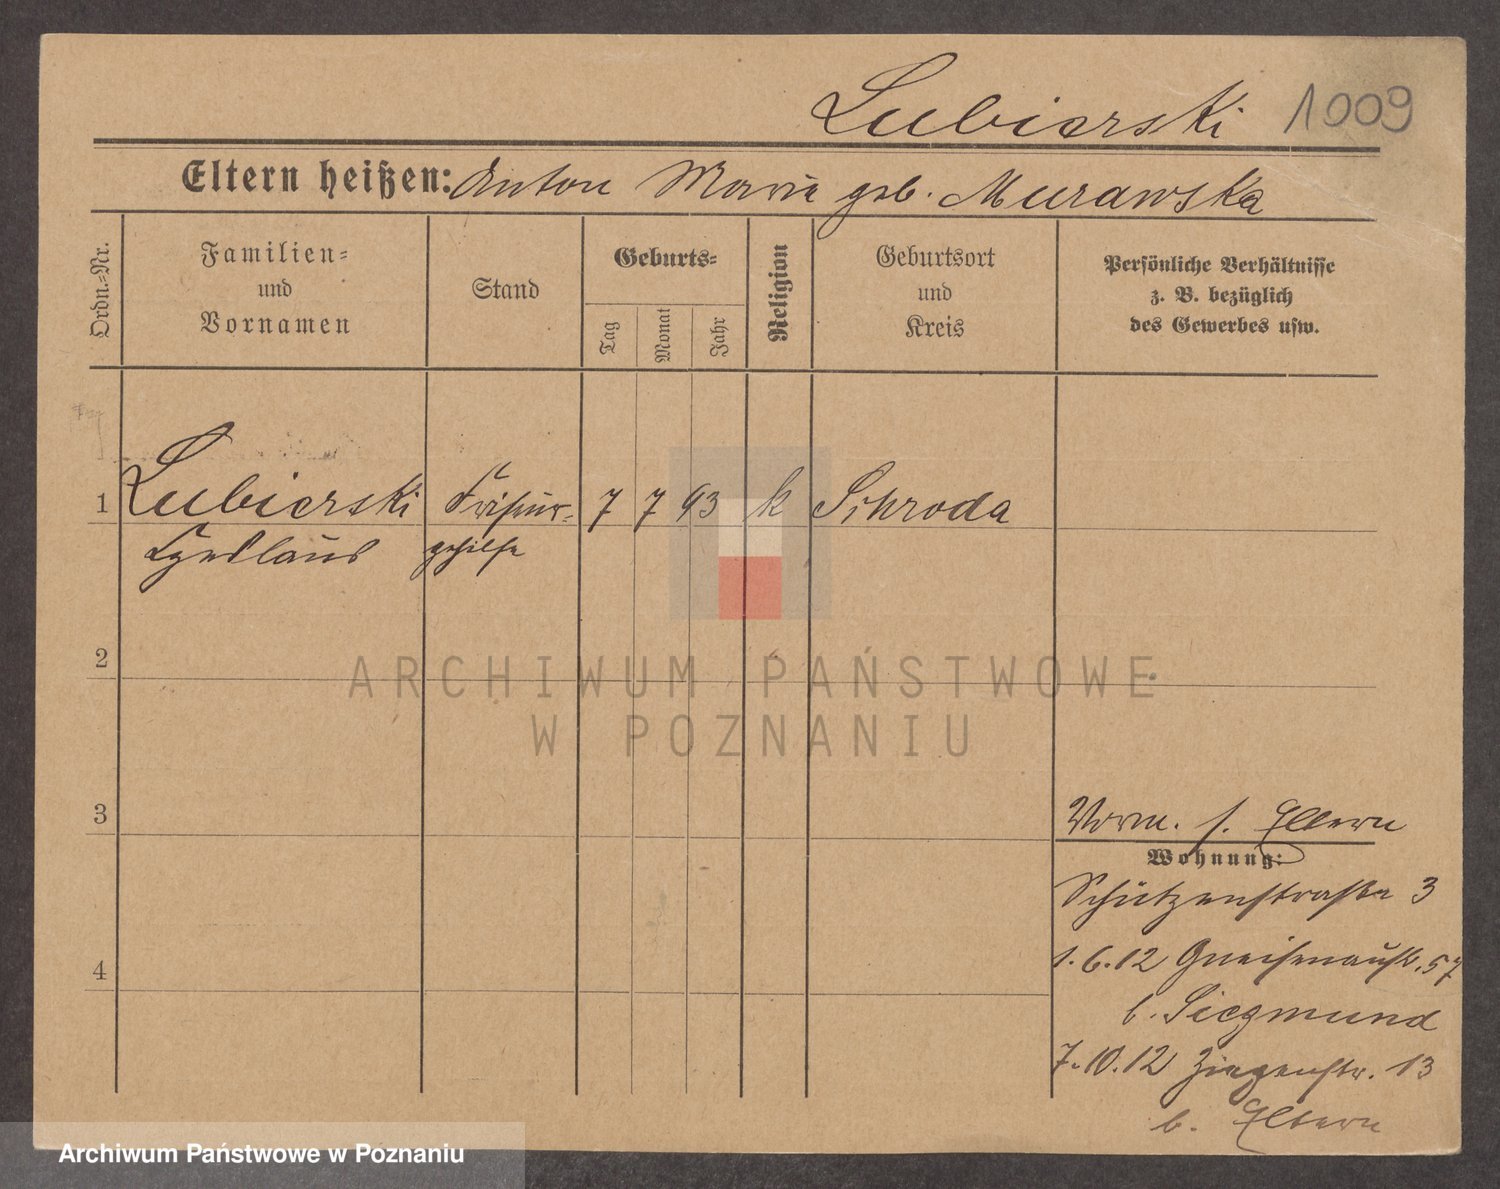 Lubierski 1009
Eltern heißen: Anton Maria geb. Murawska
Ordn.-Nr.
Familien-
und
Vornamen
Stand
Geburts-
Tag
Monat
Jahr
Religion
Geburtsort
und
Kreis
Persönliche Verhältnisse
z. B. bezüglich
des Gewerbes usw.
1 Lubierski Friseur- 7 7 93 k Schroda
gehilfe
2
3
4
Vorm. s. Eltern
Wohnung:
Schützenstraße 3
1.6.12 Gneisenaustr. 57
b. Siegmund
7.10.12 Ziegenstr. 13
b. Eltern
ARCHIWUM PAŃSTWOWE
W POZNANIU
Archiwum Państwowe w Poznaniu